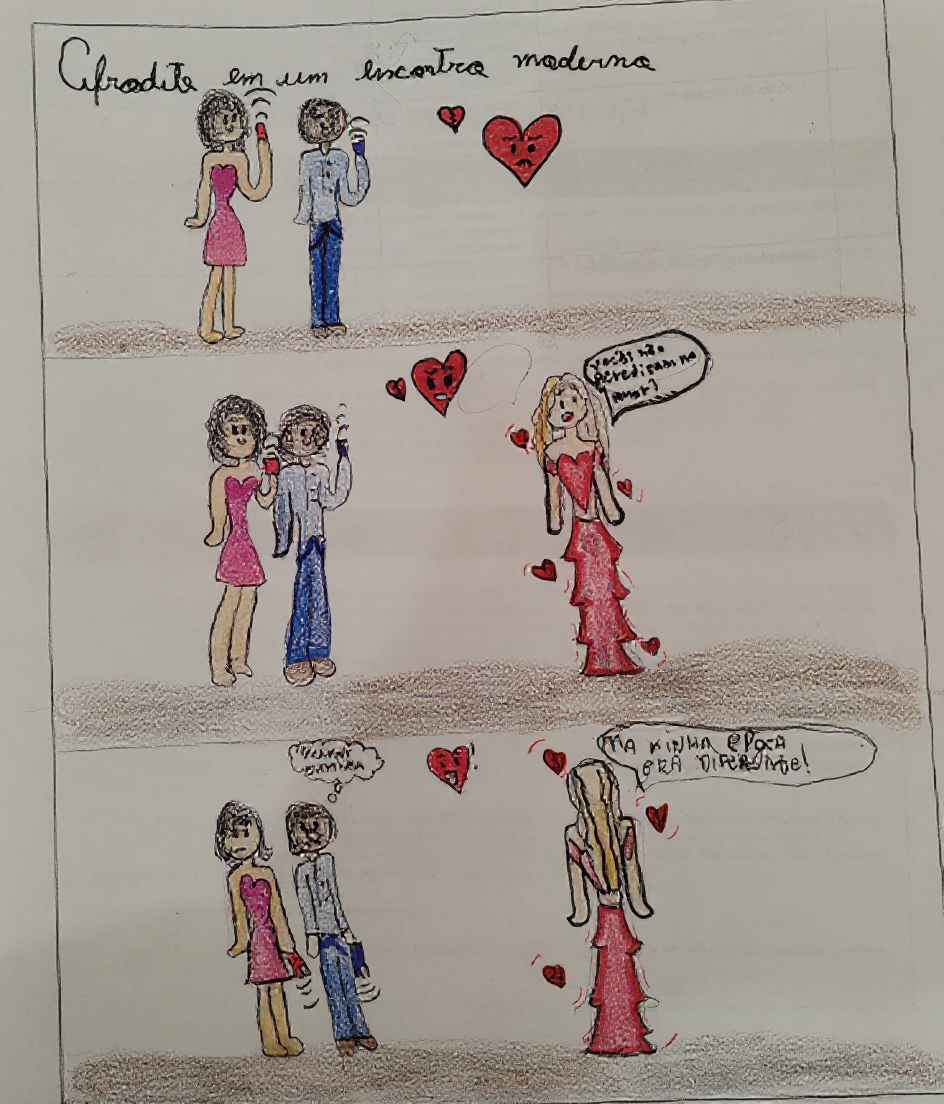 Afrodite em um encontro moderno
vocês não
acreditam no
amor?
NA MINHA ÉPOCA
ERA DIFERENTE!